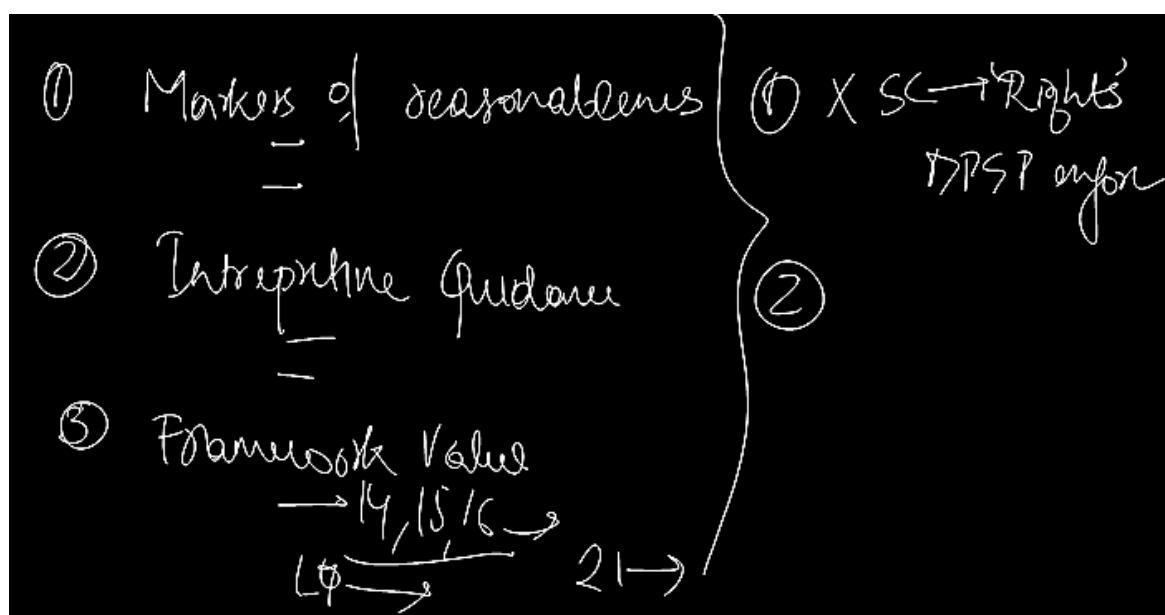 ① Markers of reasonableness
② Intrepretive Guidance
③ Framework Value
→ 14, 15, 16 →
→ 21 →
① X SC → 'Rights'
DPSP enfor
②